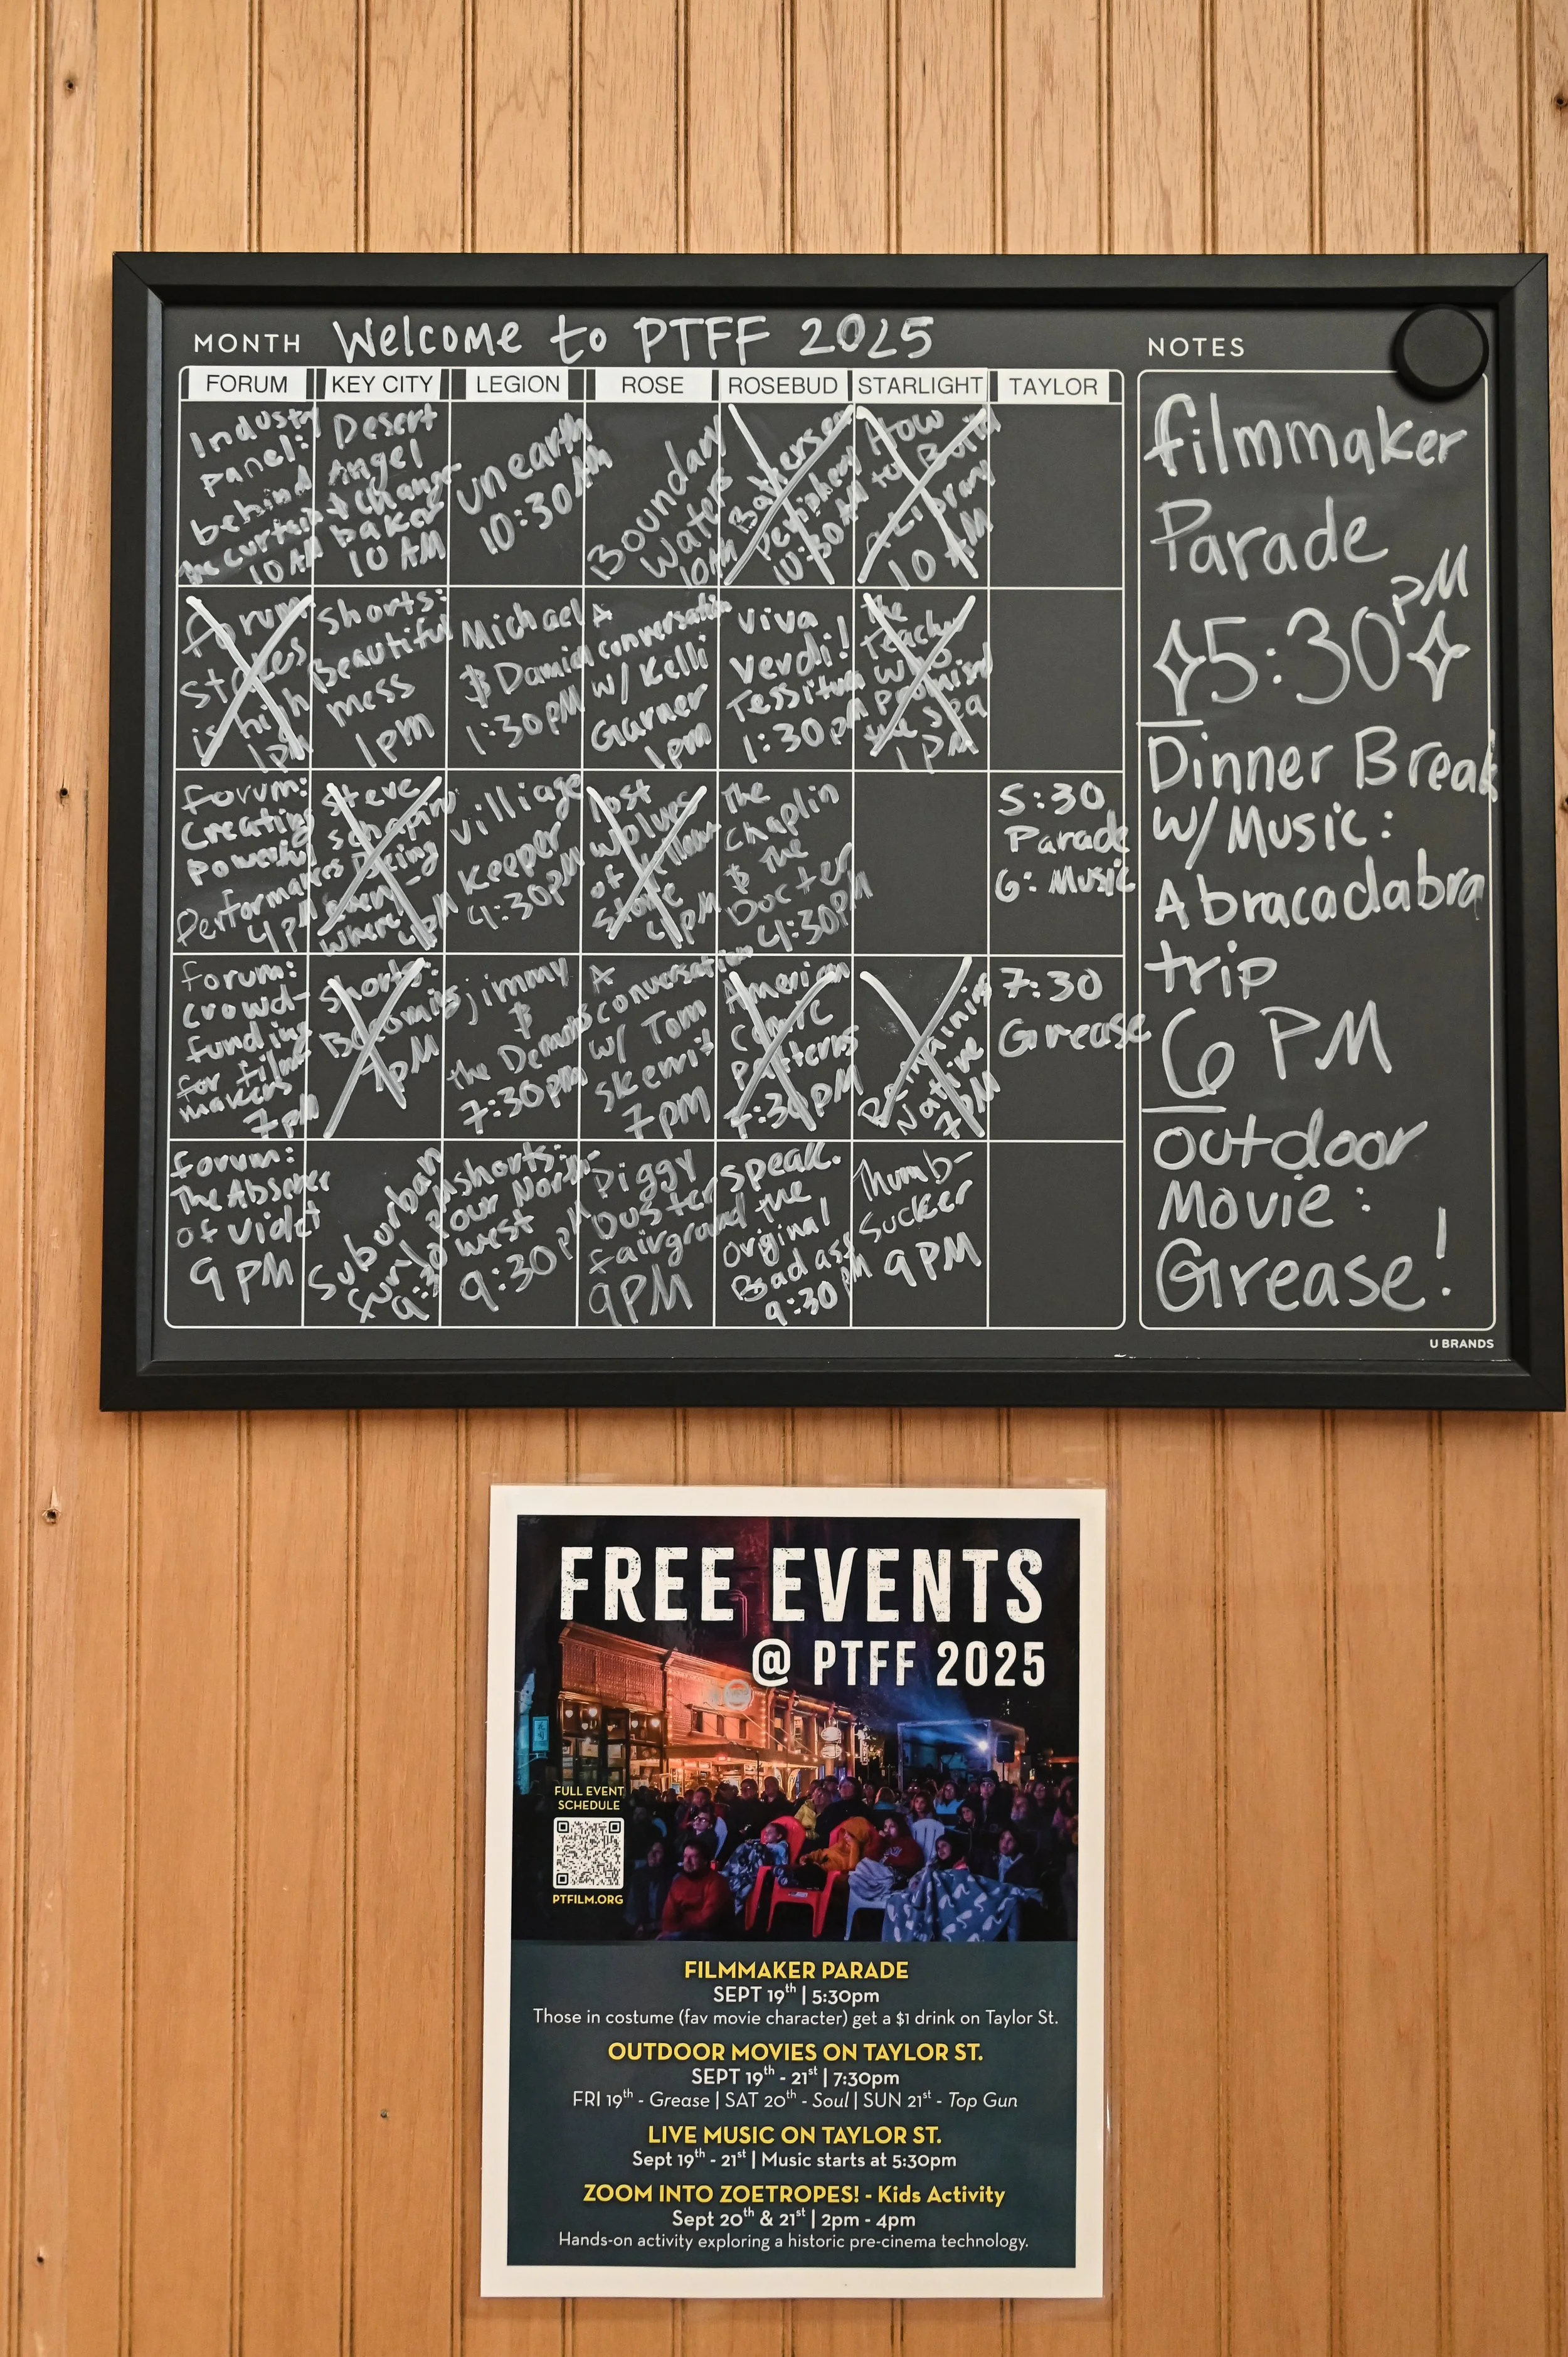 MONTH Welcome to PTFF 2025
FORUM
KEY CITY
LEGION
ROSE
ROSEBUD
STARLIGHT
TAYLOR
Industry
panel:
behind
the curtain
10 AM
Desert
Angel
+ Change
baked
10 AM
unearth
10:30 AM
Boundary
Waters
10AM
Perished
10:30 AM
How
to Build
A Library
10 AM
Forum
stakes
is high
1pm
Shorts:
Beautiful
mess
1pm
Michael
& Damian
1:30pm
A
conversation
w/ Kelli
Garner
1pm
Viva
Verdi!
Tessitura
1:30pm
the
Teacher
Who
Promised
the sea
1PM
forum:
Creating
Powerful
Performances
4pm
Steve
Schapiro
Being
Every-
where
4PM
Villiage
Keeper
4:30pm
Lost
Wolves
of Yellow
Stone
4PM
The
Chaplin
& The
Docter
4:30PM
5:30
Parade
6: Music
forum:
crowd-
funding
for film
makers
7pm
Shorts:
Becoming
7PM
jimmy
&
the Demons
7:30pm
A
conversation
w/ Tom
Skerrit
7pm
American
Comic
7:30PM
Remaining
Native
7PM
7:30
Grease
forum:
The Absence
of Violet
9PM
Suburban
fury
9:30
shorts:
our North-
west
9:30pm
Piggy
Duster
fairground
9PM
Speak.
the
Original
Bad ass
9:30PM
Thumb-
Sucker
9PM
NOTES
filmmaker
Parade
5:30 PM
Dinner Break
w/ Music:
Abracadabra
trip
6 PM
outdoor
Movie:
Grease!
U BRANDS
FREE EVENTS
@ PTFF 2025
FULL EVENT
SCHEDULE
PTFILM.ORG
FILMMAKER PARADE
SEPT 19th | 5:30pm
Those in costume (fav movie character) get a $1 drink on Taylor St.
OUTDOOR MOVIES ON TAYLOR ST.
SEPT 19th - 21st | 7:30pm
FRI 19th - Grease | SAT 20th - Soul | SUN 21st - Top Gun
LIVE MUSIC ON TAYLOR ST.
Sept 19th - 21st | Music starts at 5:30pm
ZOOM INTO ZOETROPES! - Kids Activity
Sept 20th & 21st | 2pm - 4pm
Hands-on activity exploring a historic pre-cinema technology.